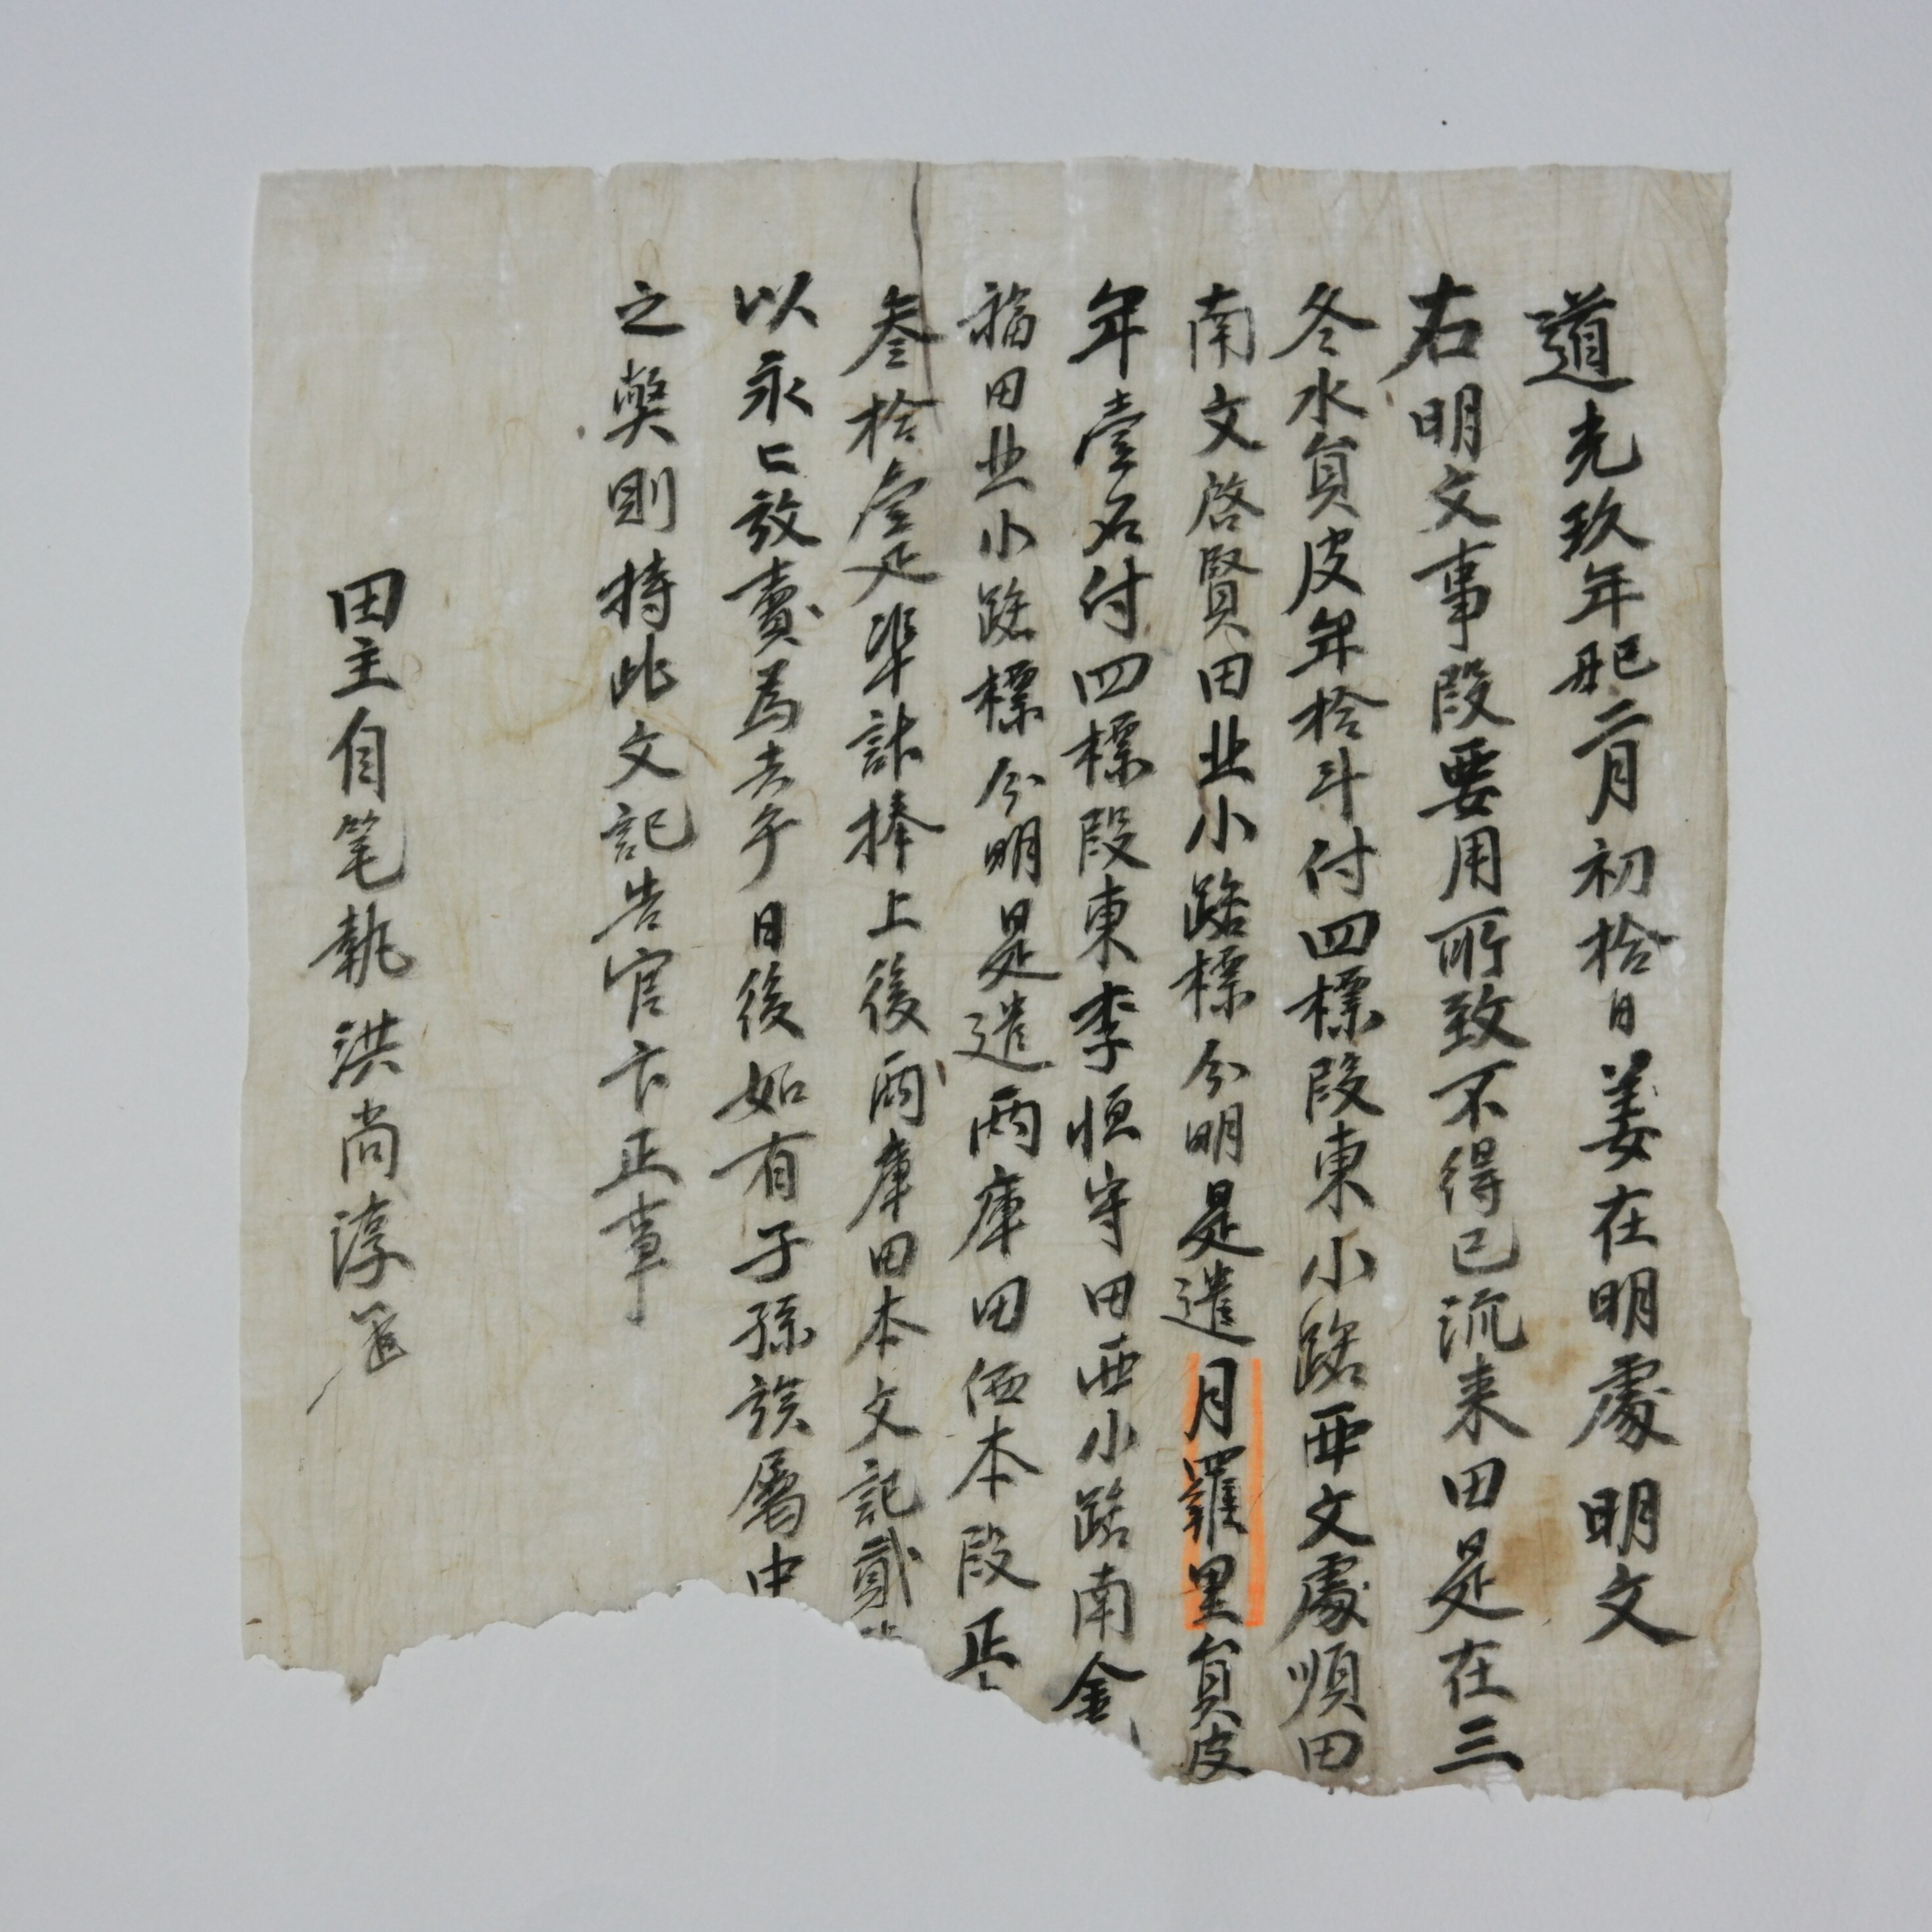 道光玖年己丑二月初拾日姜在明處明文
右明文事段要用所致不得已流来田是在三
冬水員皮年拾斗付四標段東小路西文處順田
南文啓賢田北小路標分明是遣月羅里員皮
年壹石付四標段東李恒守田西小路南金
福田北小路標分明是遣兩庫田価本段
叁拾壹疋準計捧上後兩庫田本文記貳
以永〻放賣為去乎日後如有子孫族屬中
之弊則持此文記告官卞正事
田主自笔執洪尚淳